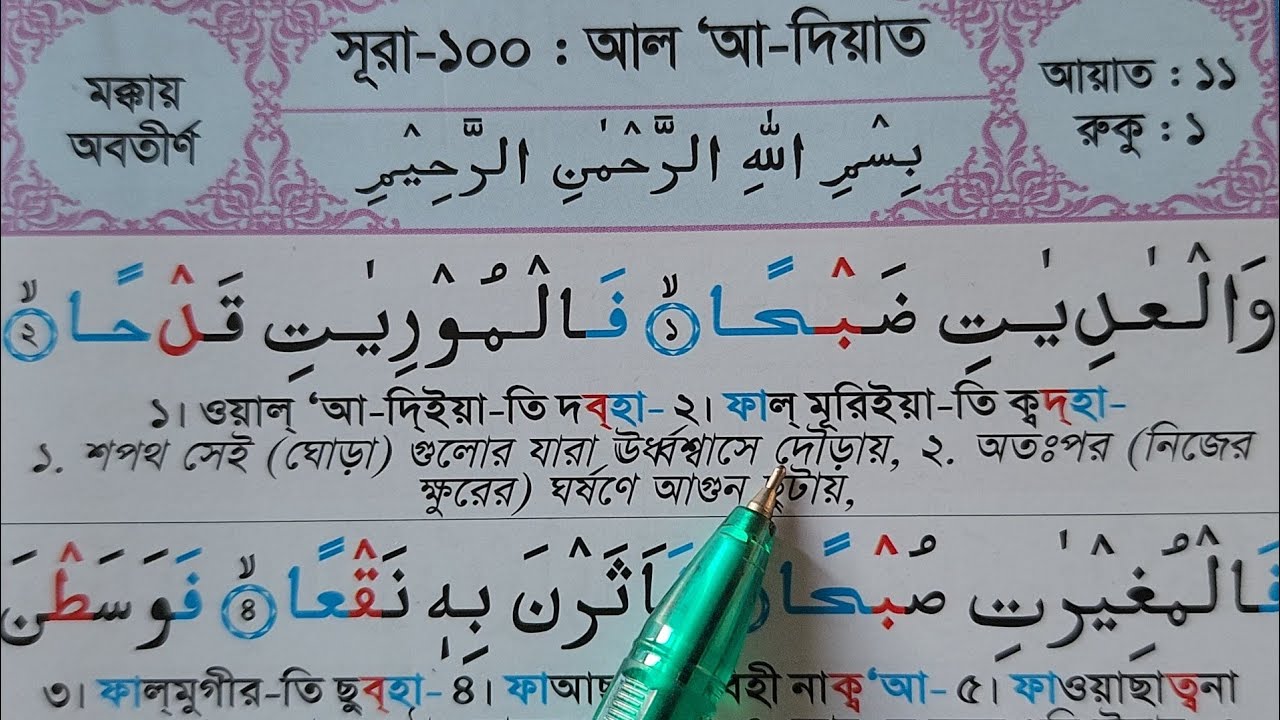 সূরা-১০০ : আল ‘আ-দিয়াত
মক্কায়
অবতীর্ণ
আয়াত : ১১
রুকু : ১
بِسْمِ اللّٰهِ الرَّحْمٰنِ الرَّحِيْمِ
وَالْعٰدِيٰتِ ضَبْحًا ۙ﴿١﴾ فَالْمُوْرِيٰتِ قَدْحًا ۙ﴿٢﴾
১। ওয়াল্ ‘আ-দি্ইয়া-তি দব্হা- ২। ফাল্ মূরিইয়া-তি ক্বদ্হা-
১. শপথ সেই (ঘোড়া) গুলোর যারা উর্ধ্বশ্বাসে দৌড়ায়, ২. অতঃপর (নিজের
ক্ষুরের) ঘর্ষণে আগুন ছুটায়,
فَالْمُغِيْرٰتِ صُبْحًا فَاَثَرْنَ بِهٖ نَقْعًا ۙ﴿٤﴾ فَوَسَطْنَ
৩। ফাল্মুগীর-তি ছুব্হা- ৪। ফাআছ বিহী নাক্ব্‘আ- ৫। ফাওয়াছাত্বনা